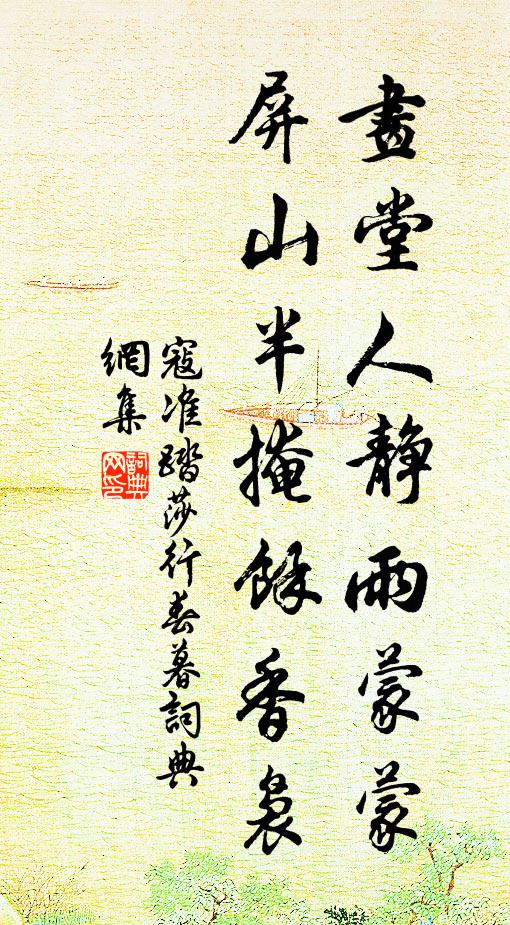 畫堂人静雨蒙蒙
屏山半掩餘香裊
寇准踏莎行春暮詞典
網集
詞典
网印